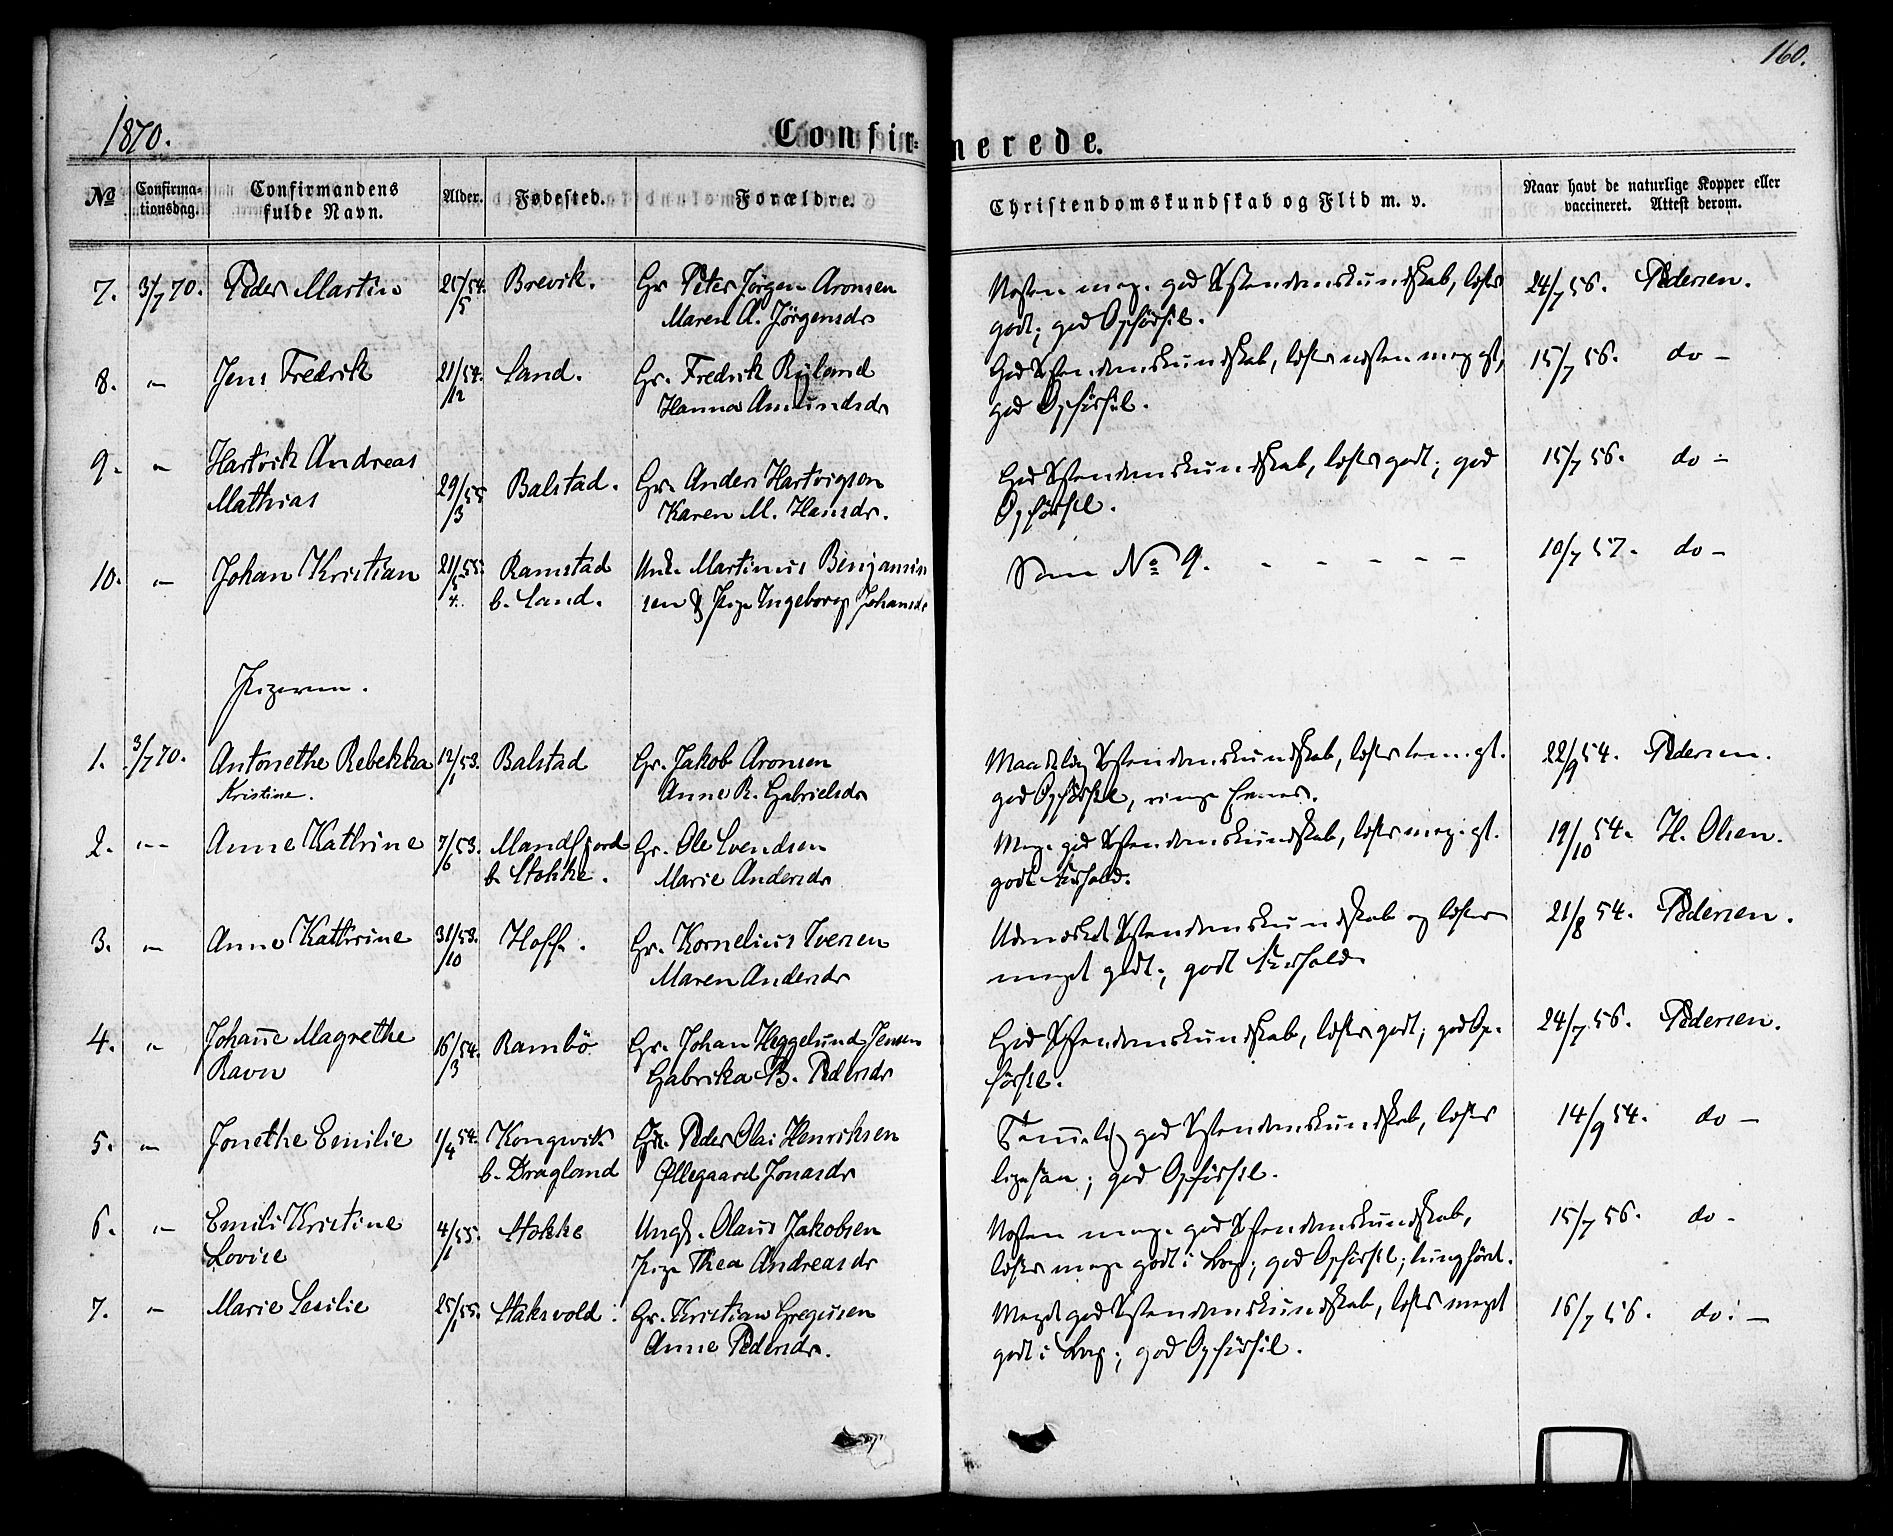 160.
1870.
Confirmerede.
No Confirmationsdag. Confirmandens fulde Navn. Alder. Fødested. Forældre. Christendomskundskab og Flid m. v. Naar havt de naturlige Kopper eller vaccineret. Attest derom.
7. 3/7 70. Peder Martin 25/5 54. Brevik. Gr. Peter Jörgen Aronsen
Maren A. Jörgensdr
Næsten meg. god Xstendomskundskab, læser
godt; god Opförsel.
24/7 56. Pedersen.
8. " Jens Fredrik 21/12 54. Sand. Gr. Fredrik Ryland
Hanna Amundsdr
God Xstendomskundskab, læser næsten meg. gt,
god Opförsel.
15/7 56. do –
9. " Hartvik Andreas
Mathias 29/3 55 Balstad. Gr. Anders Hartvigson
Karen M. Hansdr.
God Xstendomskundskab, læser godt; god
Opförsel.
15/7 56. do –
10. " Johan Kristian 21/5 55. Ramstad
b. Sand.
Unk. Martinus Benjamin
sen & Pige Ingeborg Johansdr
Som No 9. - - - - -
10/7 57. do –
Pigerne.
1. 3/7 70. Antonethe Rebekka
Kristine. 12/1 53. Balstad Gr. Jakob Aronsen
Anne R. Gabrielsdr
Maadelig Xstendomskundskab, læser tem. gt.
god Opförsel, ringe Evner.
22/9 54. Pedersen.
2. " Anne Kathrine 7/6 53. Mandfjord
b. Stokke.
Gr. Ole Svendsen
Marie Andersdr
Meg. god Xstendomskundskab, læser meg. gt.
godt Forhold.
19/10 54. H. Olsen.
3. " Anne Kathrine 31/10 53. Hoff. Gr. Kornelius Iversen
Maren Andersdr
Udmærket Xstendomskundskab og læser
meget godt; godt Forhold.
21/8 54. Pedersen.
4. " Johanne Magrethe
Ravn 16/3 54. Rambö Gr. Johan Heggelund Jensen
Gabrika B. Pedersdr
God Xstendomskundskab, læser godt; god Op-
försel.
24/7 56. Pedersen.
5. " Jonethe Emilie 1/4 54. Kongsvik
b. Dragland
Gr. Peder Olai Henriksen
Øllegaard Jonasdr
Temmelig god Xstendomskundskab, læser
ligesaa; god Opförsel.
14/9 54. do –
6. " Emili Kristine
Lovise 4/1 55. Stokke Ungk. Olaus Jakobsen
Pige Thea Andreasdr
Næsten meget god Xstendomskundskab,
læser meg. godt i Bog; god Opförsel;
15/7 56. do –
7. " Marie Sesilie 25/1 55. Staksvold. Gr. Kristian Gregusen
Anne Pedersdr.
Meget god Xstendomskundskab, læser meget
godt i Bog; god Opförsel.
16/7 56. do. –